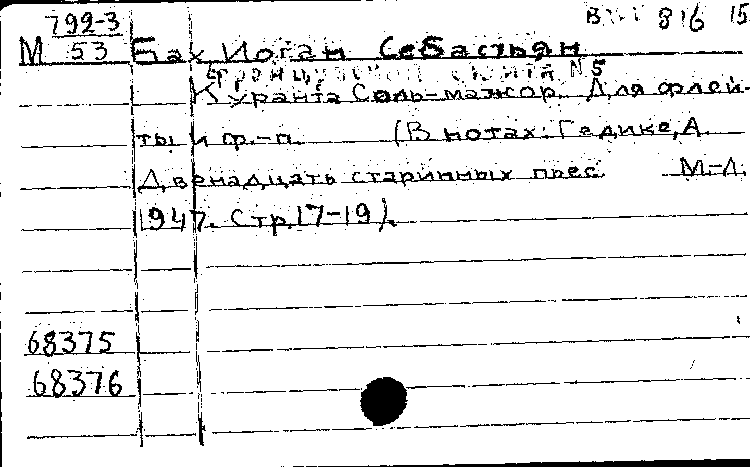 792-3
BWV 816 15
М 53 Бах, Иоган Себастьян
Французской сюита N 5
Куранта Соль-мажор. Для флей-
ты и ф.-п. (В нотах: Гедике, А.
Двенадцать старинных пьес. М.-Л.
1947. Стр. 17-19).
68375
68376